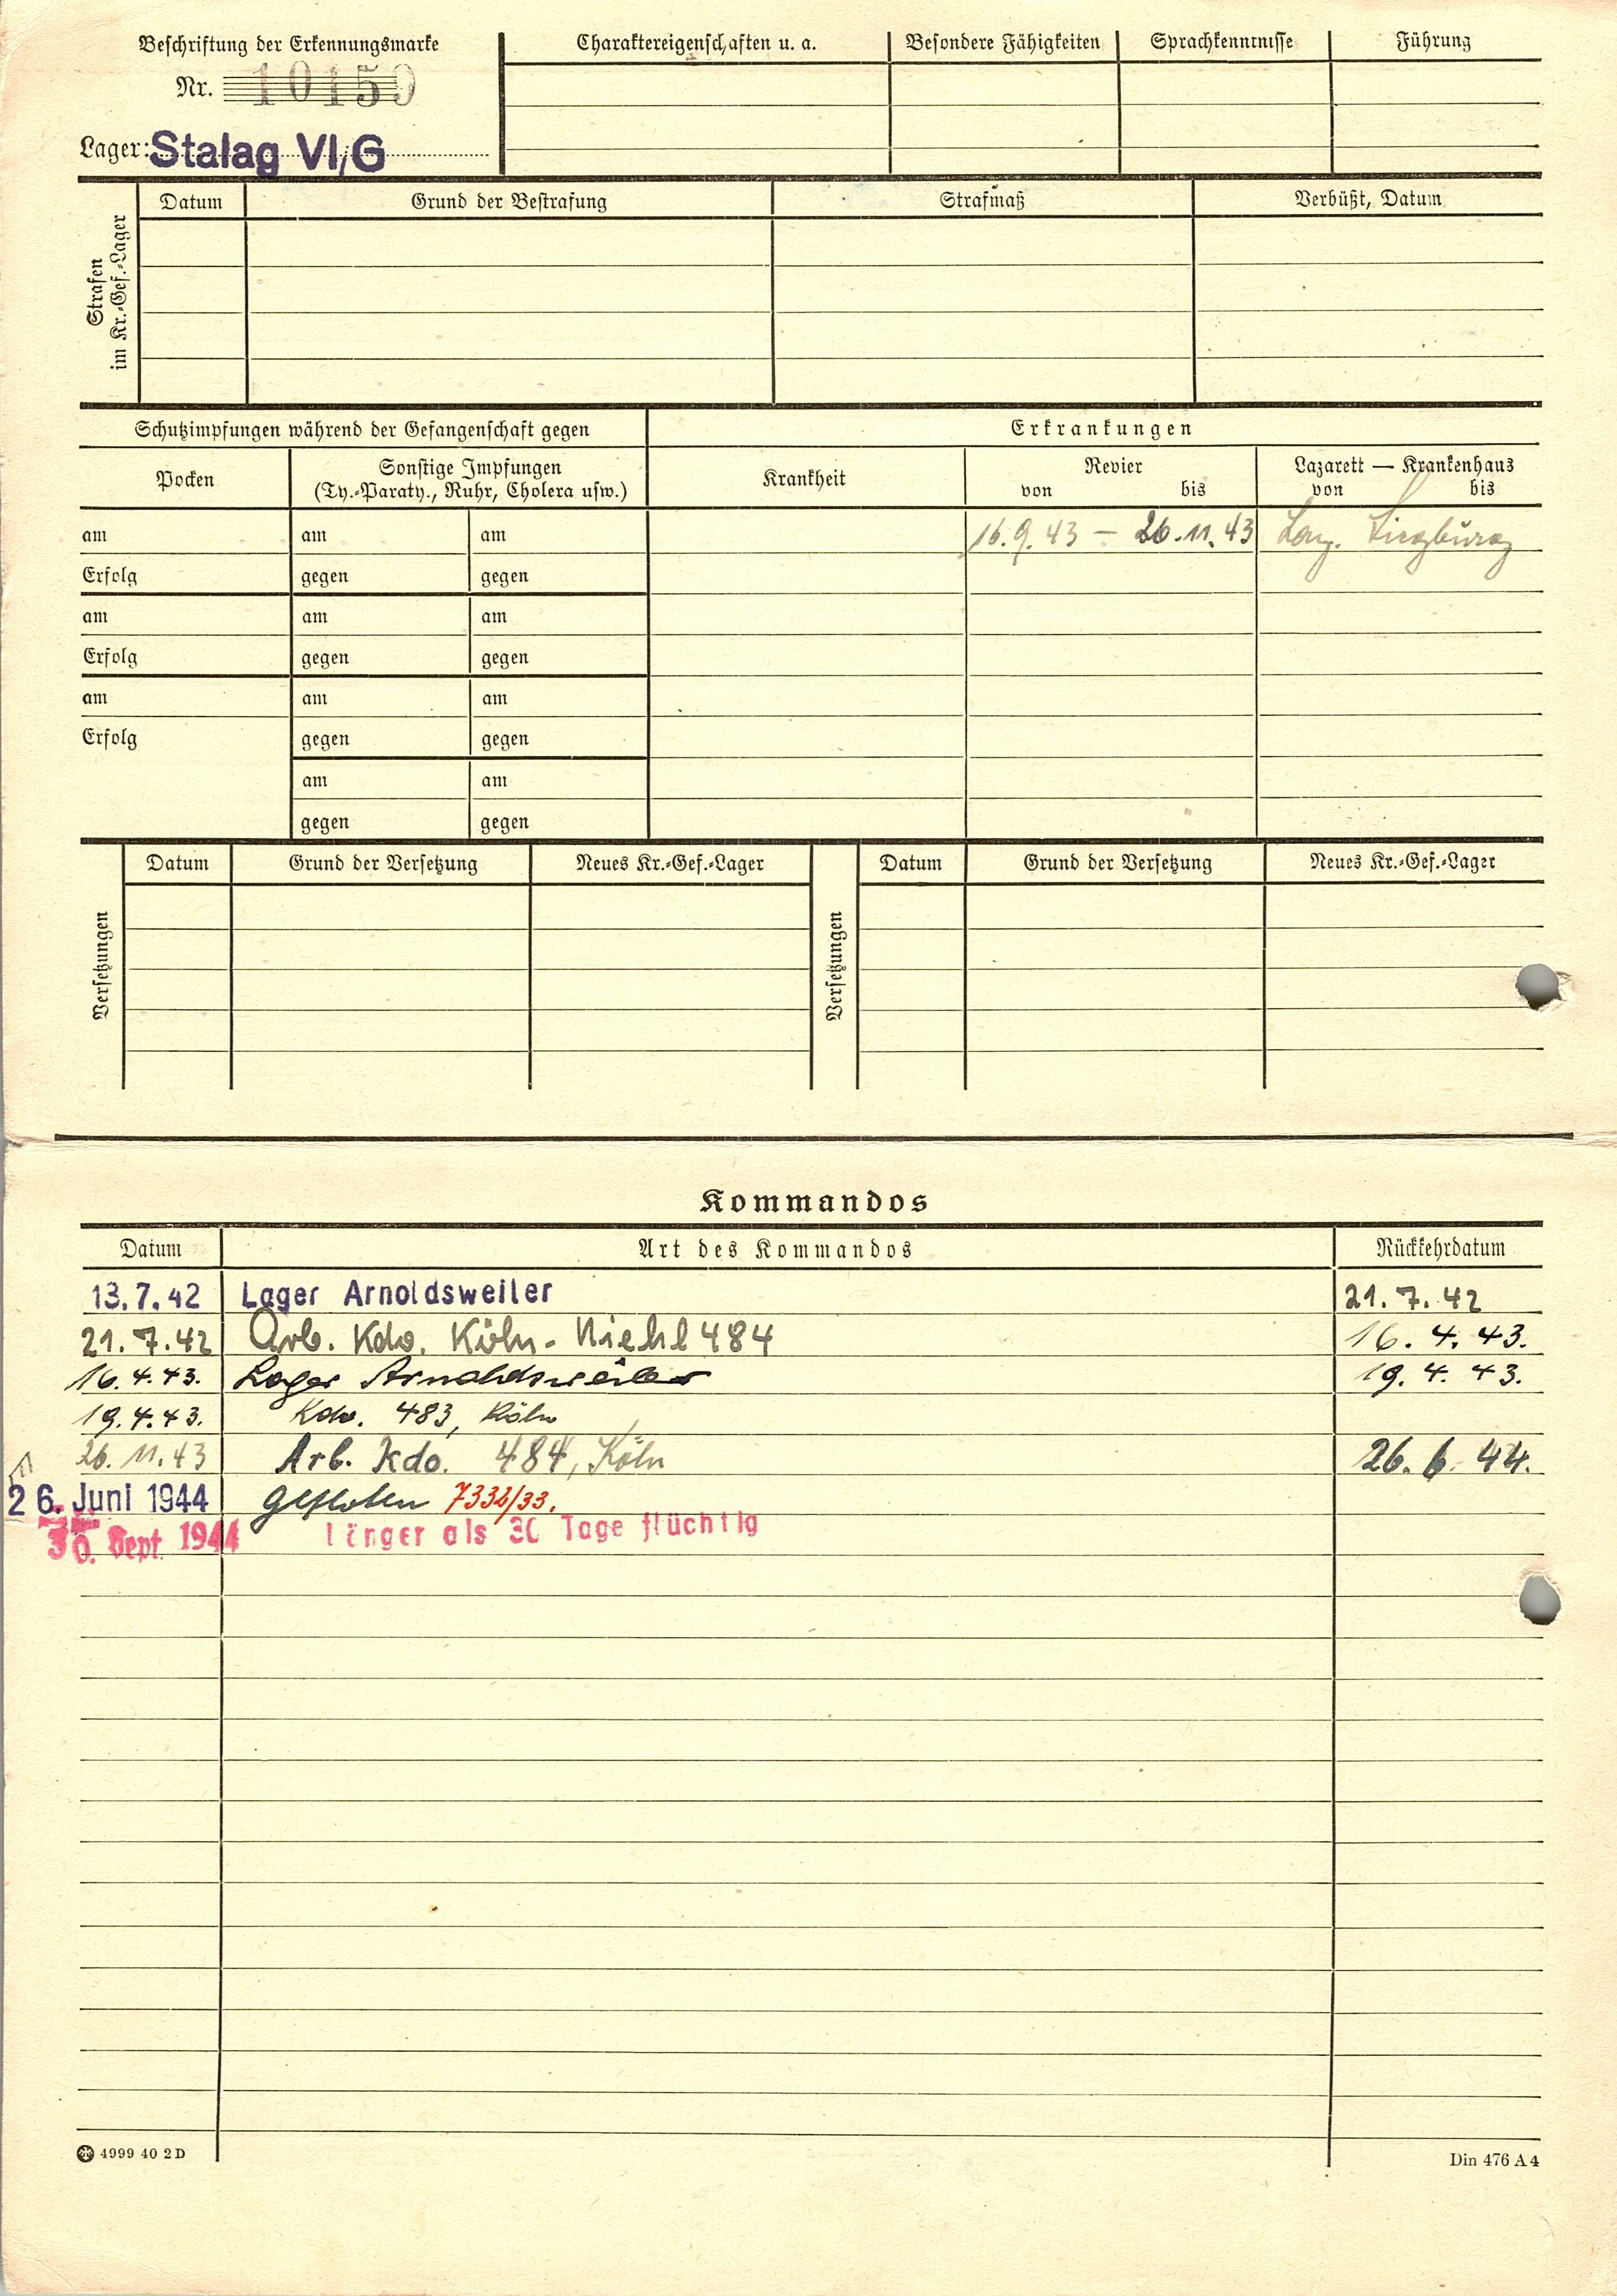 Beschriftung der Erkennungsmarke
Nr. 10159
Lager: Stalag VI/G
Charaktereigenschaften u. a. Besondere Fähigkeiten Sprachkenntnisse Führung
Strafen
im Kr.-Gef.-Lager
Datum Grund der Bestrafung Strafmaß Verbüßt, Datum
Schutzimpfungen während der Gefangenschaft gegen Erkrankungen
Pocken
Sonstige Impfungen
(Ty.-Paraty., Ruhr, Cholera usw.)
Krankheit
Revier
von bis
Lazarett — Krankenhaus
von bis
am am am 16.9.43 — 26.11.43 Siegburg
Erfolg gegen gegen
am am am
Erfolg gegen gegen
am am am
Erfolg gegen gegen
am am
gegen gegen
Versetzungen
Datum Grund der Versetzung Neues Kr.-Gef.-Lager
Versetzungen
Datum Grund der Versetzung Neues Kr.-Gef.-Lager
Kommandos
Datum Art des Kommandos Rückkehrdatum
13.7.42 Lager Arnoldsweiler 21.7.42
21.7.42 Arb. Kdo. Köln-Niehl 484 16.4.43.
16.4.43. Lager Arnoldsweiler 19.4.43.
19.4.43. Kdo. 483, Köln
26.11.43 Arb. Kdo. 484, Köln 26.6.44.
26. Juni 1944 geflohen 7332/33.
30. Sept 1944 länger als 30 Tage flüchtig
4999 40 2 D Din 476 A 4